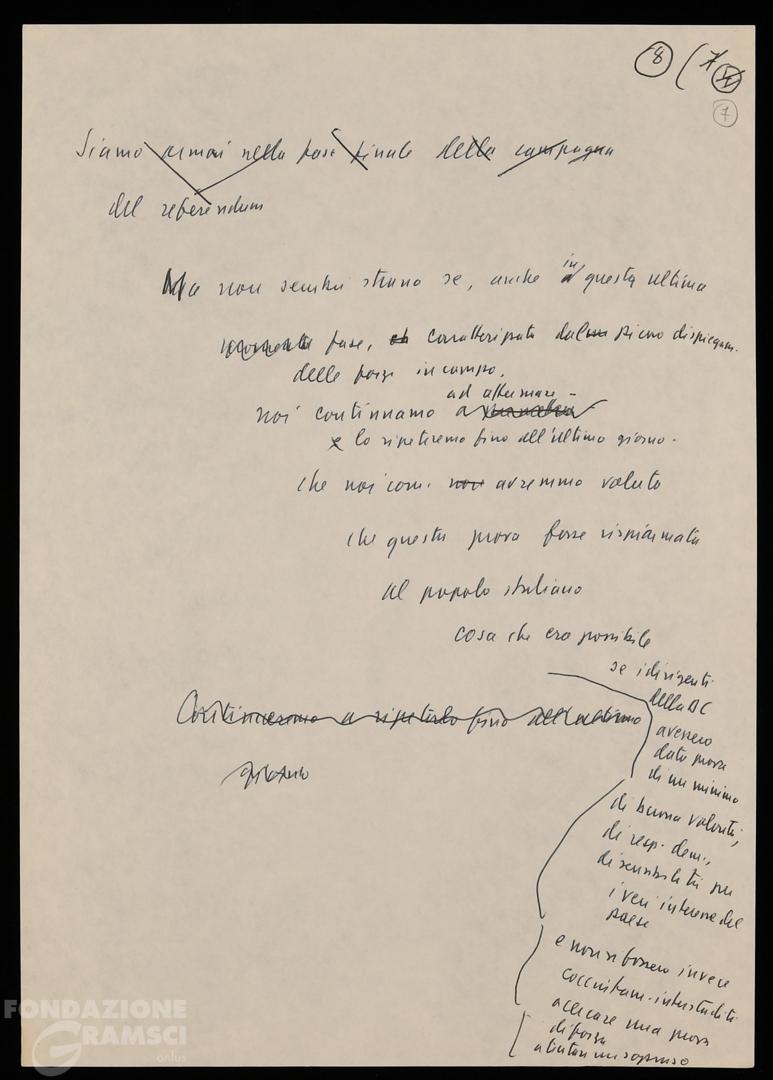 8 (7
7
Siamo ormai nella fase finale della campagna
del referendum
Ma non sembri strano se, anche in questa ultima
fase, caratterizzata dal pieno dispiegam.
delle forze in campo,
ad affermare -
noi continuiamo a
e lo ripeteremo fino all'ultimo giorno -
che noi com. non avremmo voluto
che questa prova fosse risparmiata
al popolo italiano
cosa che era possibile
se i dirigenti
della DC
avessero
dato prova
di un minimo
di buona volontà,
di resp. dem.,
di sensibilità per
i veri interessi del
paese
e non si fossero invece
intestarditi
a cercare una prova
di forza
a tentare un sopruso
Continueremo a ripeterlo fino all'ultimo
giorno
FONDAZIONE
GRAMSCI
onlus